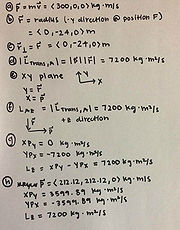 ⓐ p⃗ = mv⃗ = <300,0,0> kg·m/s
ⓑ r⃗ = radius (-y direction @ position F)
= <0,-24,0> m
ⓒ r⃗⊥ = r⃗ = <0,-24,0> m
ⓓ |L⃗trans,A| = |p⃗||r⃗| = 7200 kg·m²/s
ⓔ xy plane
y = r⃗
x = p⃗
y
x
ⓕ LAz = |L⃗trans,A| = 7200 kg·m²/s
+z direction
r⃗
p⃗
ⓖ xPy = 0 kg·m²/s
yPx = -7200 kg·m²/s
Lz = xPy - yPx = 7200 kg·m²/s
ⓗ p⃗ = <212.12, 212.12, 0> kg·m/s
xPy = 3599.89 kg·m²/s
yPx = -3599.89 kg·m²/s
Lz = 7200 kg·m²/s